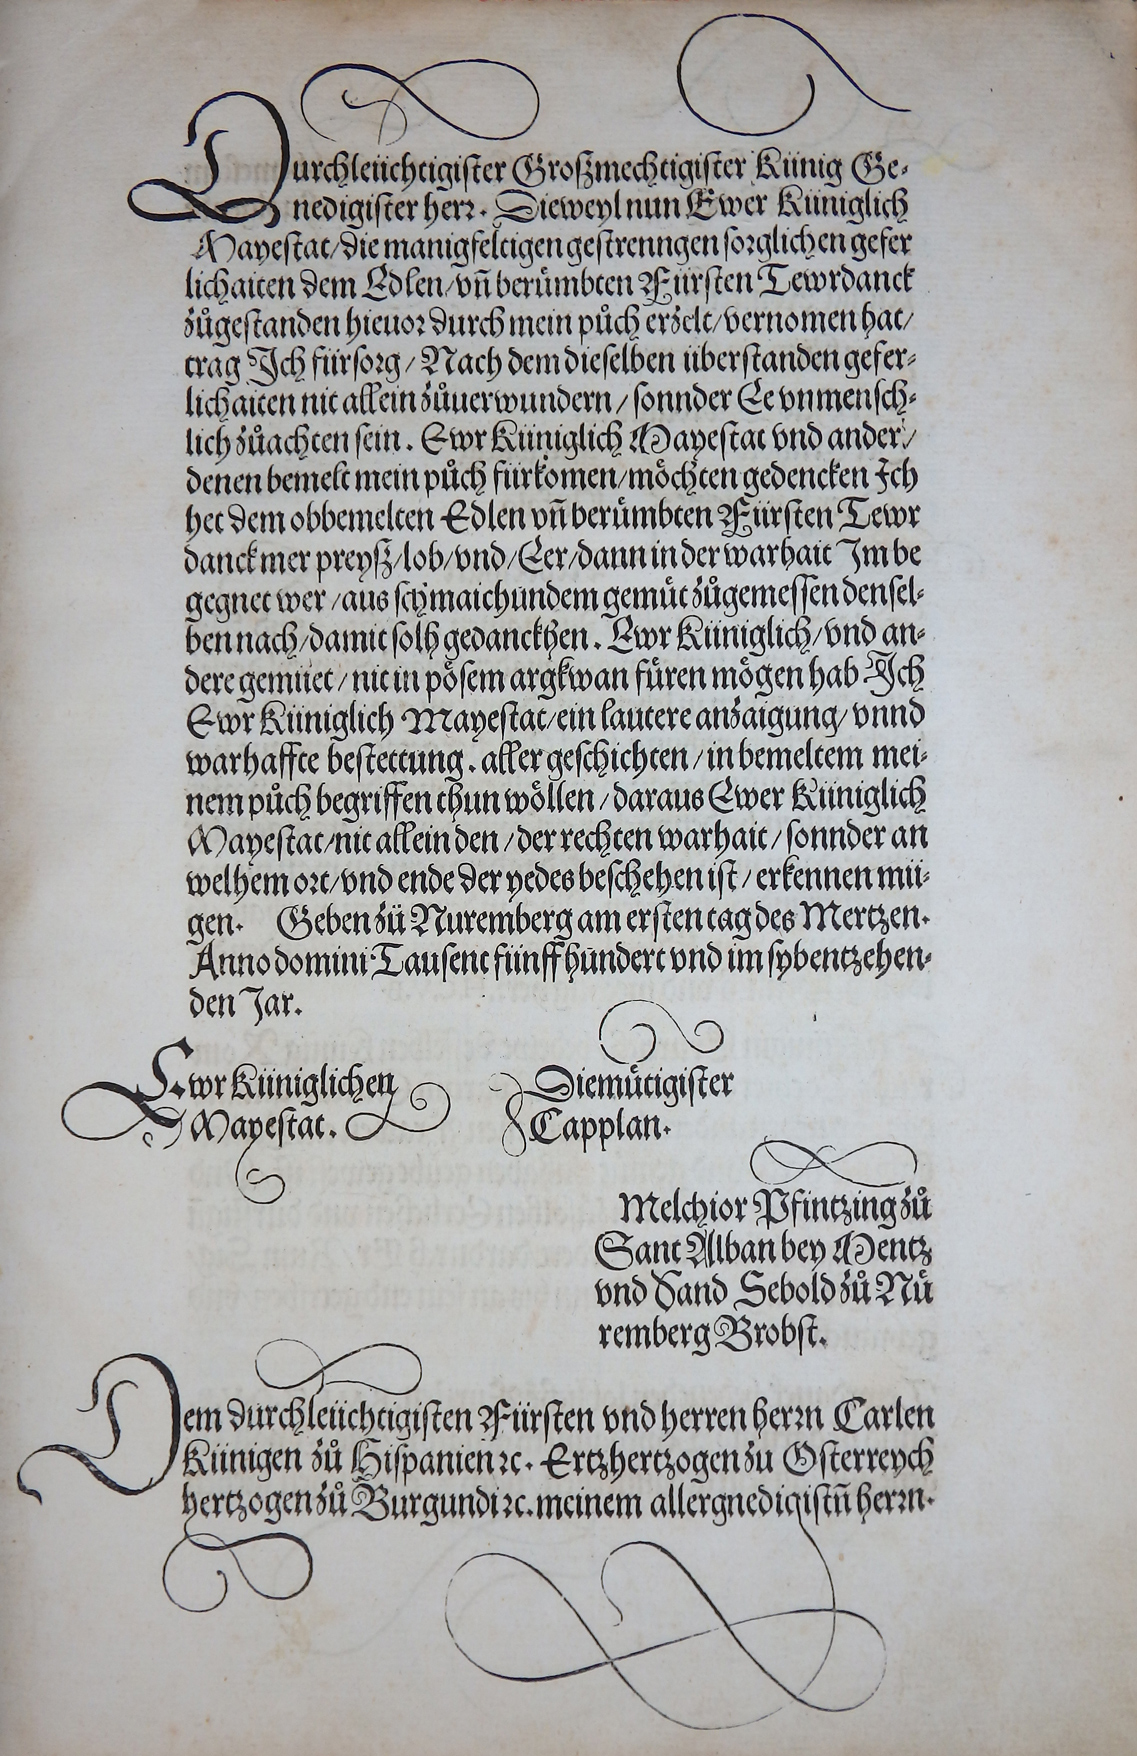 Durchleüchtigister Großmechtigister Künig Ge-
nedigister herr. Dieweyl nun Ewer Küniglich
Mayestat/die manigfeltigen gestrenngen sorglichen gefer
lichaiten dem Edlen/vñ berůmbten Fürsten Tewrdanck
zůgestanden hieuor durch mein půch erzelt/vernomen hat/
trag Ich fürsorg/Nach dem dieselben überstanden gefer-
lichaiten nit allein zůuerwundern/sonnder Ee vnmensch-
lich zůachten sein. Ewr Küniglich Mayestat vnd ander/
denen bemelt mein půch fürkomen/möchten gedencken Ich
het dem obbemelten Edlen vñ berůmbten Fürsten Tewr
danck mer preyß/lob/vnd/Eer/dann in der warhait Im be
gegnet wer/aus schmaichundem gemüt zůgemessen densel-
ben nach/damit solh gedanckhen. Ewr Küniglich/vnd an-
dere gemüet/nit in pösem argkwan füren mögen hab Ich
Ewr Küniglich Mayestat/ein lautere anzaigung/vnnd
warhaffte bestettung. aller geschichten/in bemeltem mei-
nem půch begriffen thun wöllen/daraus Ewer Küniglich
Mayestat/nit allein den/der rechten warhait/sonnder an
welhem ort/vnd ende der yedes beschehen ist/erkennen mü-
gen. Geben zü Nuremberg am ersten tag des Mertzen.
Anno domini Tausent fünffhundert vnd im sybentzehen-
den Jar.
Ewr Küniglichen Diemütigister
Mayestat. Capplan.
Melchior Pfintzing zů
Sant Alban bey Mentz
vnd Sand Sebold zů Nů
remberg Brobst.
Dem durchleüchtigisten Fürsten vnd herren herrn Carlen
Künigen zů Hispanien ꝛc. Ertzhertzogen zu Osterreych
hertzogen zů Burgundi ꝛc. meinem allergnedigistñ herrn.